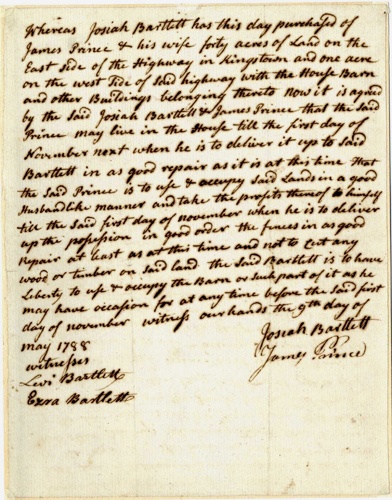 Whereas Josiah Bartlett has this day purchased of
James Prince & his wife forty acres of Land on the
East Side of the Highway in Kingstown and one acre
on the west Side of Said highway with the House Barn
and other Buildings belonging thereto Now it is agreed
by the Said Josiah Bartlett & James Prince that the Said
Prince may live in the House till the first day of
November next when he is to deliver it up to Said
Bartlett in as good repair as it is at this time that
the Said Prince is to use & occupy Said Lands in a good
Husbandlike manner and take the profits thereof to himself
till the Said first day of november when he is to deliver
up the possession in good order the fences in as good
Repair at least as at this time and not to Cut any
wood or timber on Said land the Said Bartlett is to have
Liberty to use & occupy the Barn or such part of it as he
may have occasion for at any time before the Said first
day of november witness our hands the 9th day of
may 1788
Josiah Bartlett
James Prince
witnesses
Levi Bartlett
Ezra Bartlett